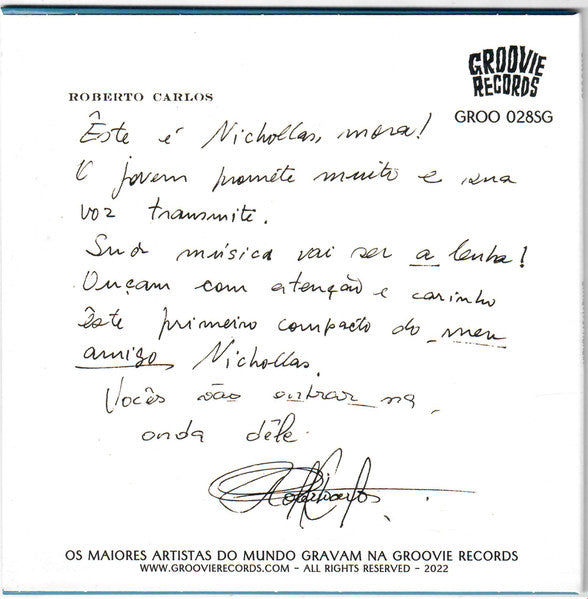 GROOVIE
RECORDS
GROO 028SG
ROBERTO CARLOS
Êste é Nichollas, mora!
O jovem promete muito e sua
voz transmite.
Sua música vai ser a lenha!
Ouçam com atenção e carinho
êste primeiro compacto do meu
amigo Nichollas.
Vocês vão entrar na
onda dêle
Roberto Carlos
OS MAIORES ARTISTAS DO MUNDO GRAVAM NA GROOVIE RECORDS
WWW.GROOVIERECORDS.COM - ALL RIGHTS RESERVED - 2022